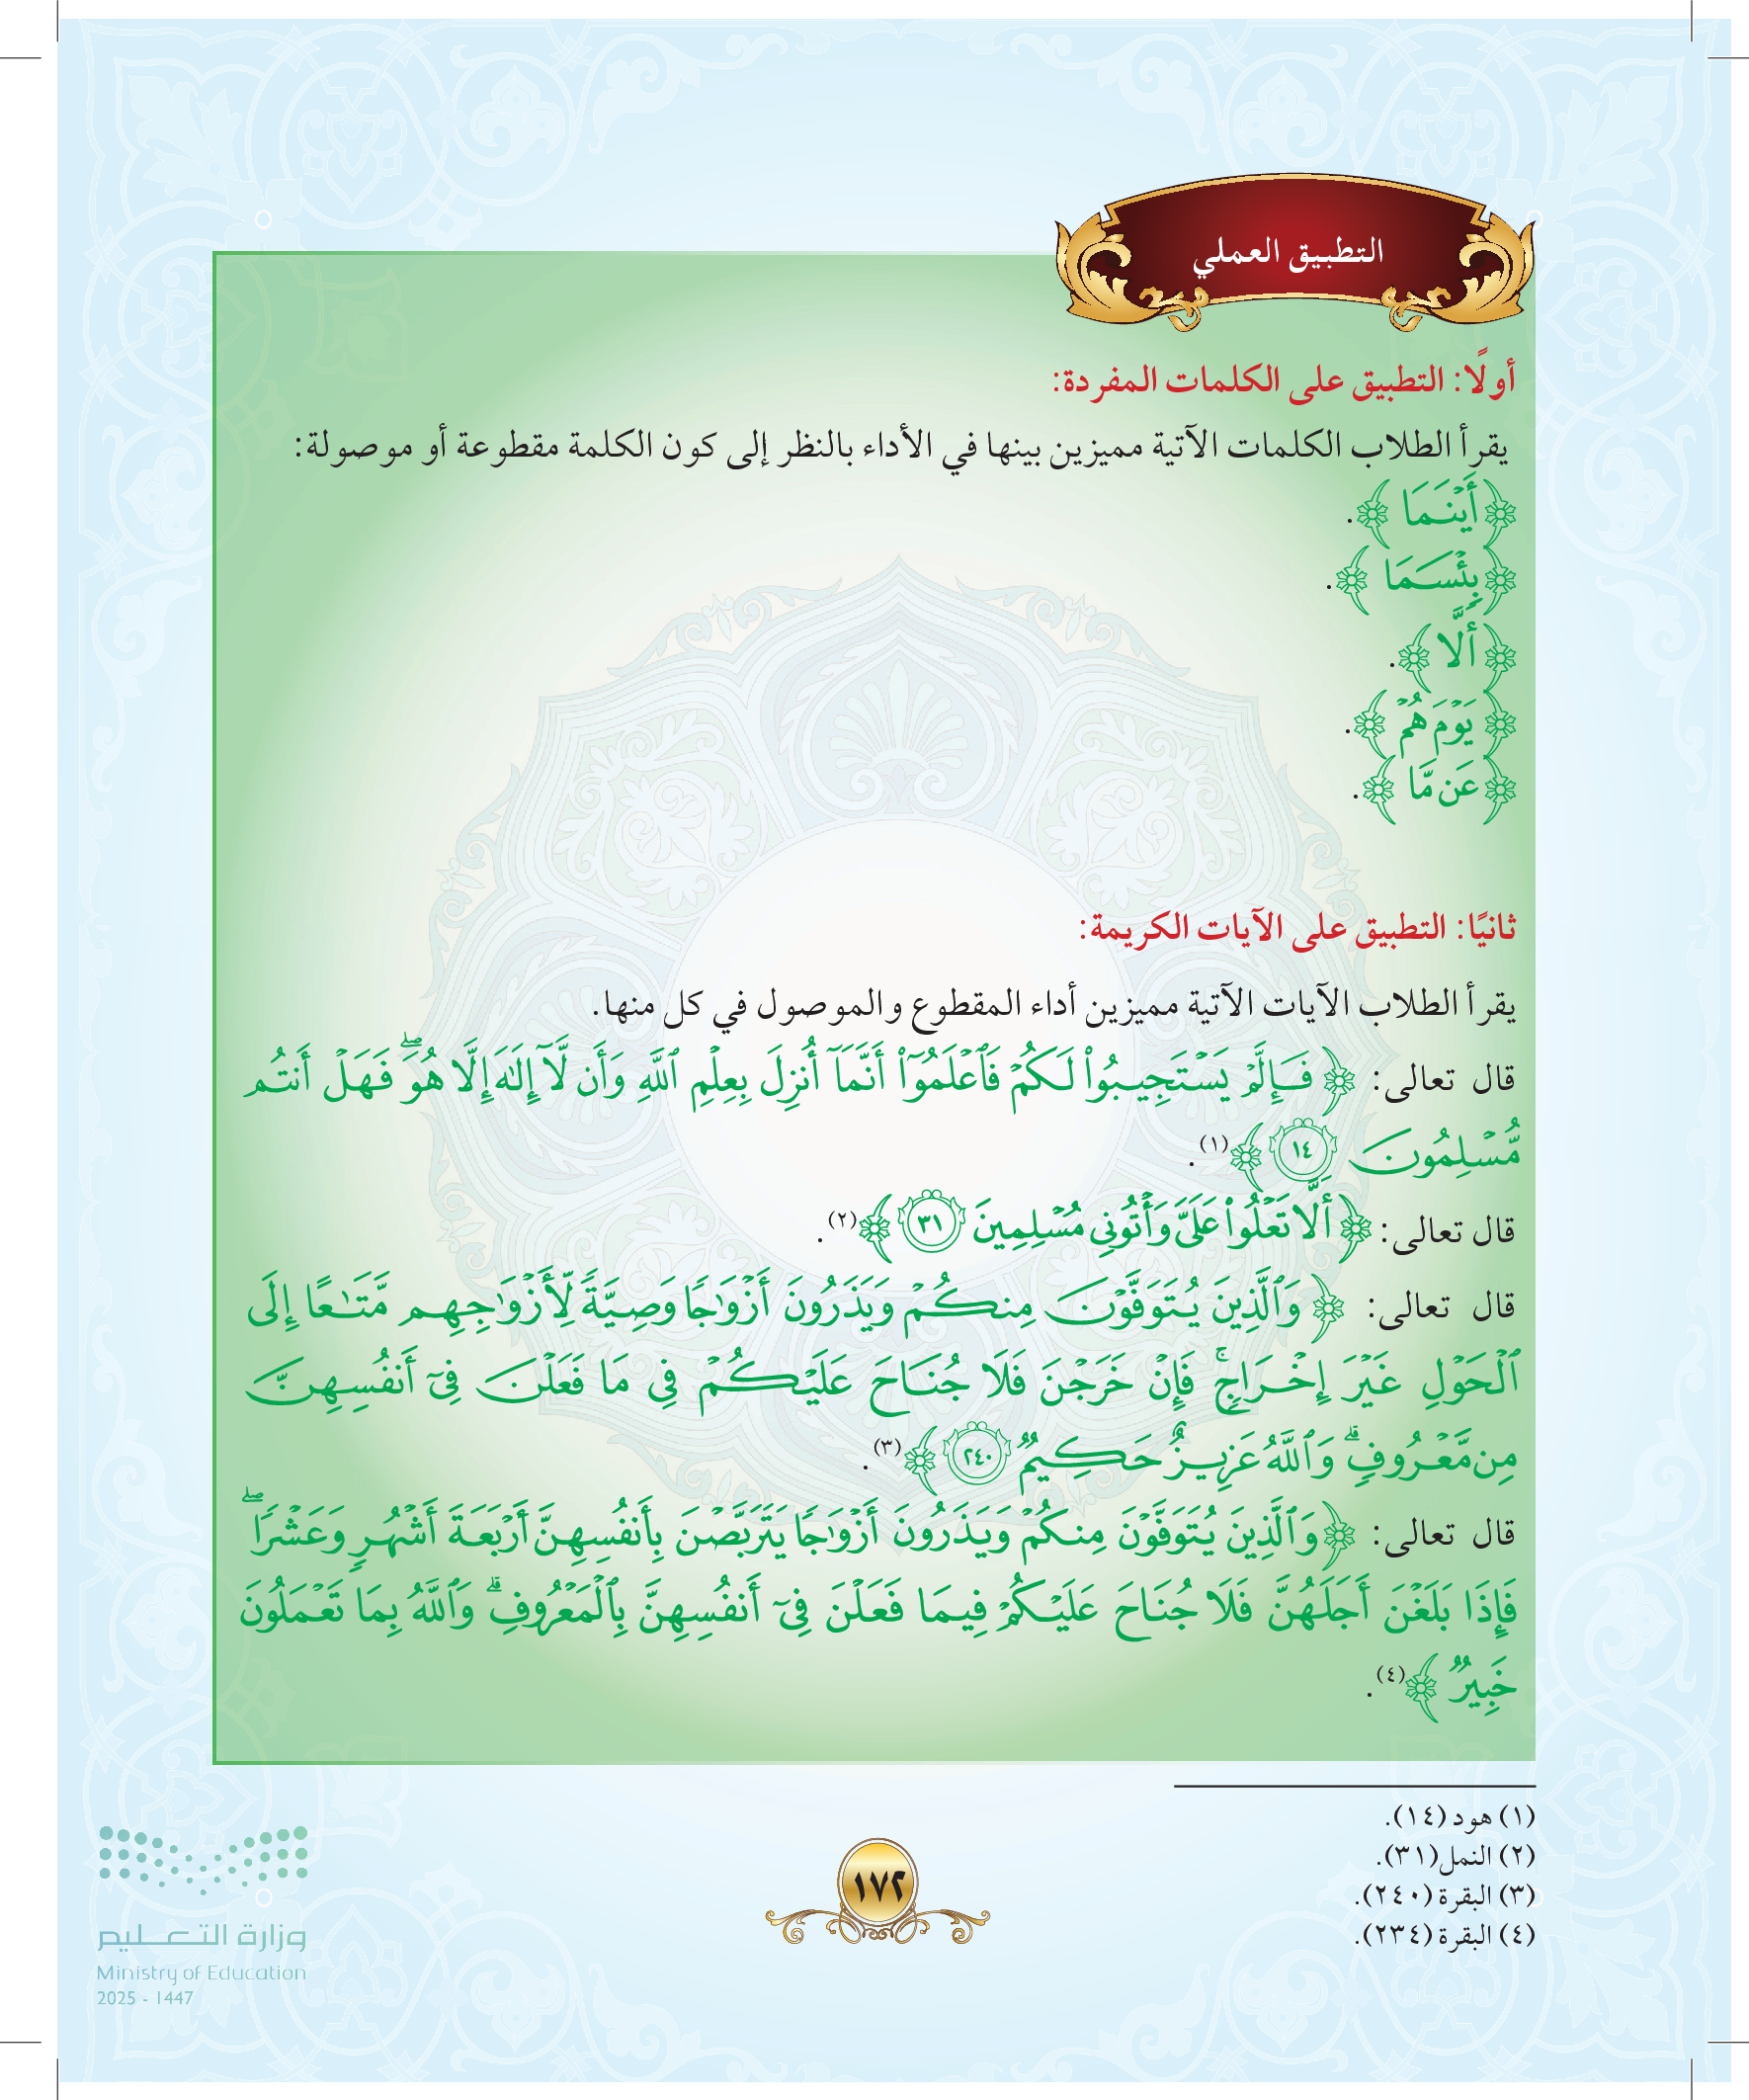 التطبيق العملي
أولًا: التطبيق على الكلمات المفردة:
يقرأ الطلاب الكلمات الآتية مميزين بينها في الأداء بالنظر إلى كون الكلمة مقطوعة أو موصولة:
﴿أَيۡنَمَا﴾.
﴿بِئۡسَمَا﴾.
﴿أَلَّا﴾.
﴿يَوۡمَ هُمۡ﴾.
﴿عَن مَّا﴾.
ثانيًا: التطبيق على الآيات الكريمة:
يقرأ الطلاب الآيات الآتية مميزين أداء المقطوع والموصول في كل منها.
قال تعالى: ﴿فَإِلَّمۡ يَسۡتَجِيبُواْ لَكُمۡ فَٱعۡلَمُوٓاْ أَنَّمَآ أُنزِلَ بِعِلۡمِ ٱللَّهِ وَأَن لَّآ إِلَٰهَ إِلَّا هُوَۖ فَهَلۡ أَنتُم
مُّسۡلِمُونَ ١٤﴾(١).
قال تعالى: ﴿أَلَّا تَعۡلُواْ عَلَيَّ وَأۡتُونِي مُسۡلِمِينَ ٣١﴾(٢).
قال تعالى: ﴿وَٱلَّذِينَ يُتَوَفَّوۡنَ مِنكُمۡ وَيَذَرُونَ أَزۡوَٰجٗا وَصِيَّةٗ لِّأَزۡوَٰجِهِم مَّتَٰعًا إِلَى
ٱلۡحَوۡلِ غَيۡرَ إِخۡرَاجٖۚ فَإِنۡ خَرَجۡنَ فَلَا جُنَاحَ عَلَيۡكُمۡ فِي مَا فَعَلۡنَ فِيٓ أَنفُسِهِنَّ
مِن مَّعۡرُوفٖۗ وَٱللَّهُ عَزِيزٌ حَكِيمٞ ٢٤٠﴾(٣).
قال تعالى: ﴿وَٱلَّذِينَ يُتَوَفَّوۡنَ مِنكُمۡ وَيَذَرُونَ أَزۡوَٰجٗا يَتَرَبَّصۡنَ بِأَنفُسِهِنَّ أَرۡبَعَةَ أَشۡهُرٖ وَعَشۡرٗاۖ
فَإِذَا بَلَغۡنَ أَجَلَهُنَّ فَلَا جُنَاحَ عَلَيۡكُمۡ فِيمَا فَعَلۡنَ فِيٓ أَنفُسِهِنَّ بِٱلۡمَعۡرُوفِۗ وَٱللَّهُ بِمَا تَعۡمَلُونَ
خَبِيرٞ﴾(٤).
(١) هود (١٤).
(٢) النمل(٣١).
(٣) البقرة (٢٤٠).
(٤) البقرة (٢٣٤).
١٧٢
وزارة التعليم
Ministry of Education
2025 - 1447